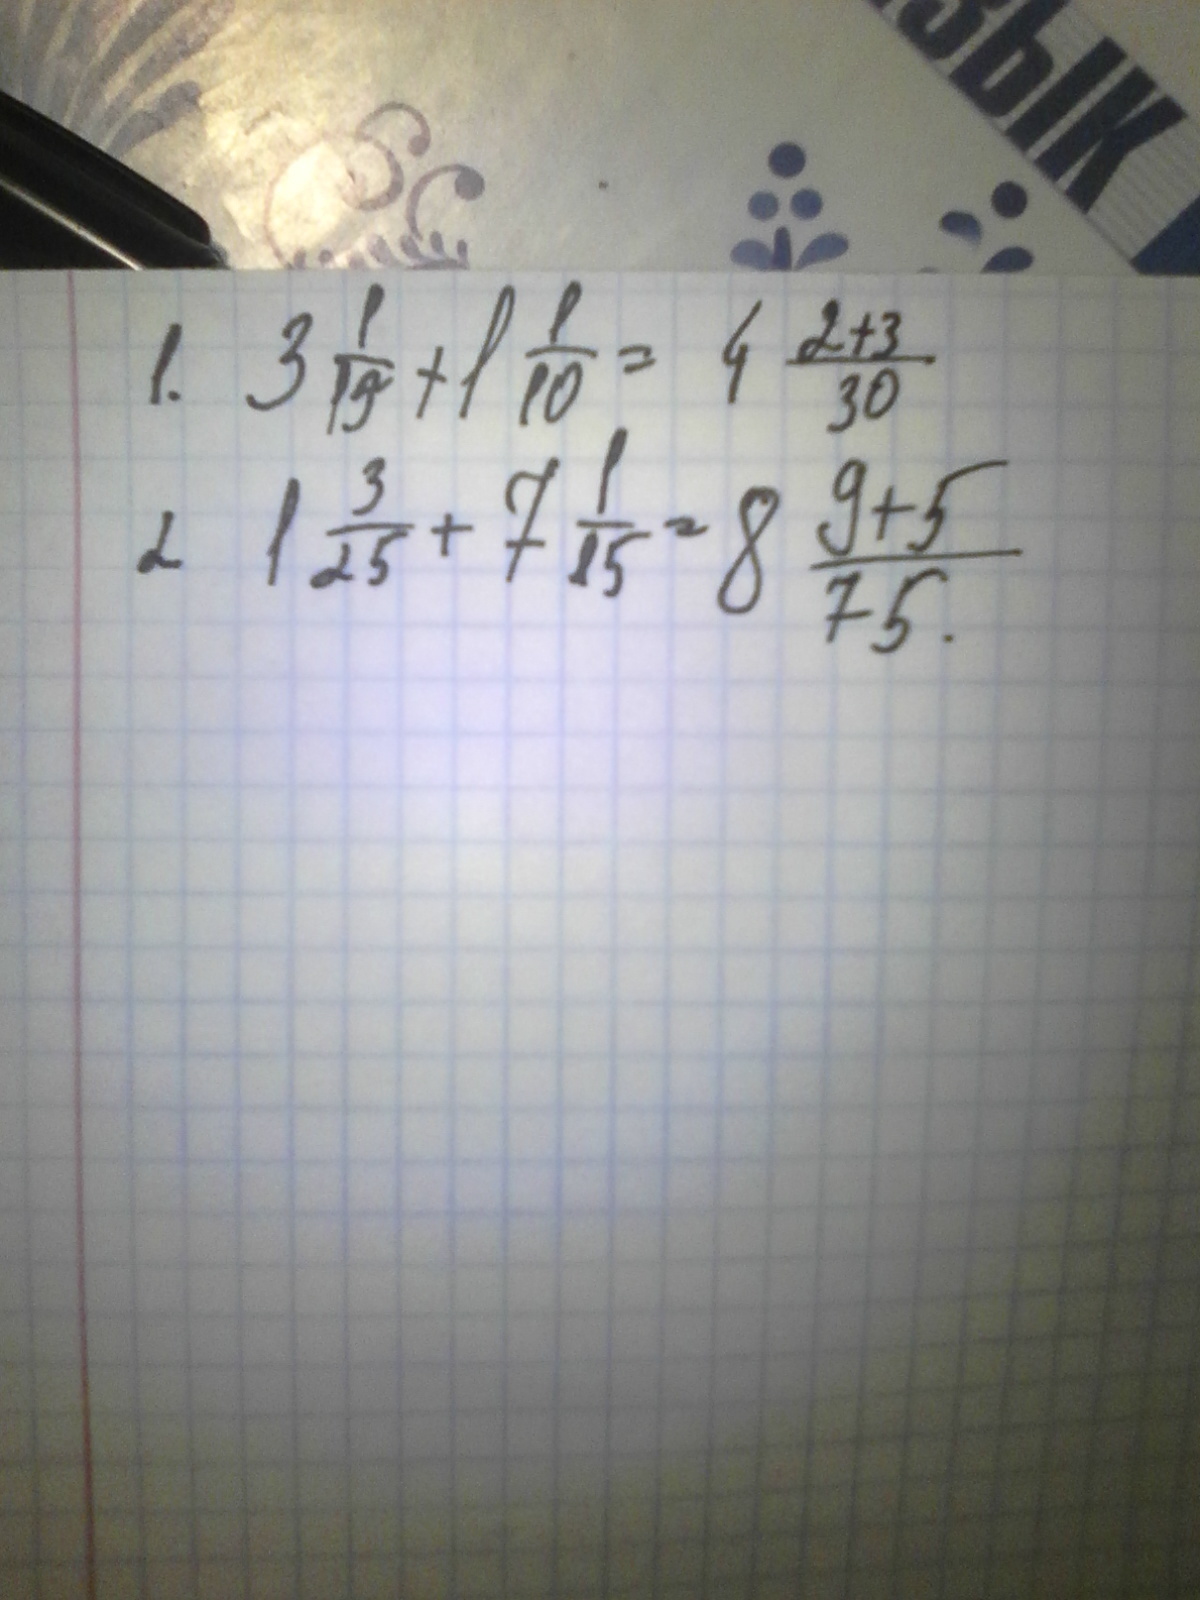 ЗЫК
1. 3 1/15 + 1 1/10 = 4 2+3/30
2 1 3/25 + 7 1/15 = 8 9+5/75.